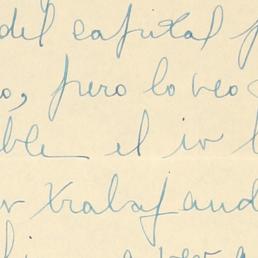 del capital p
o, pero lo veo
ble el ir l
trabajand